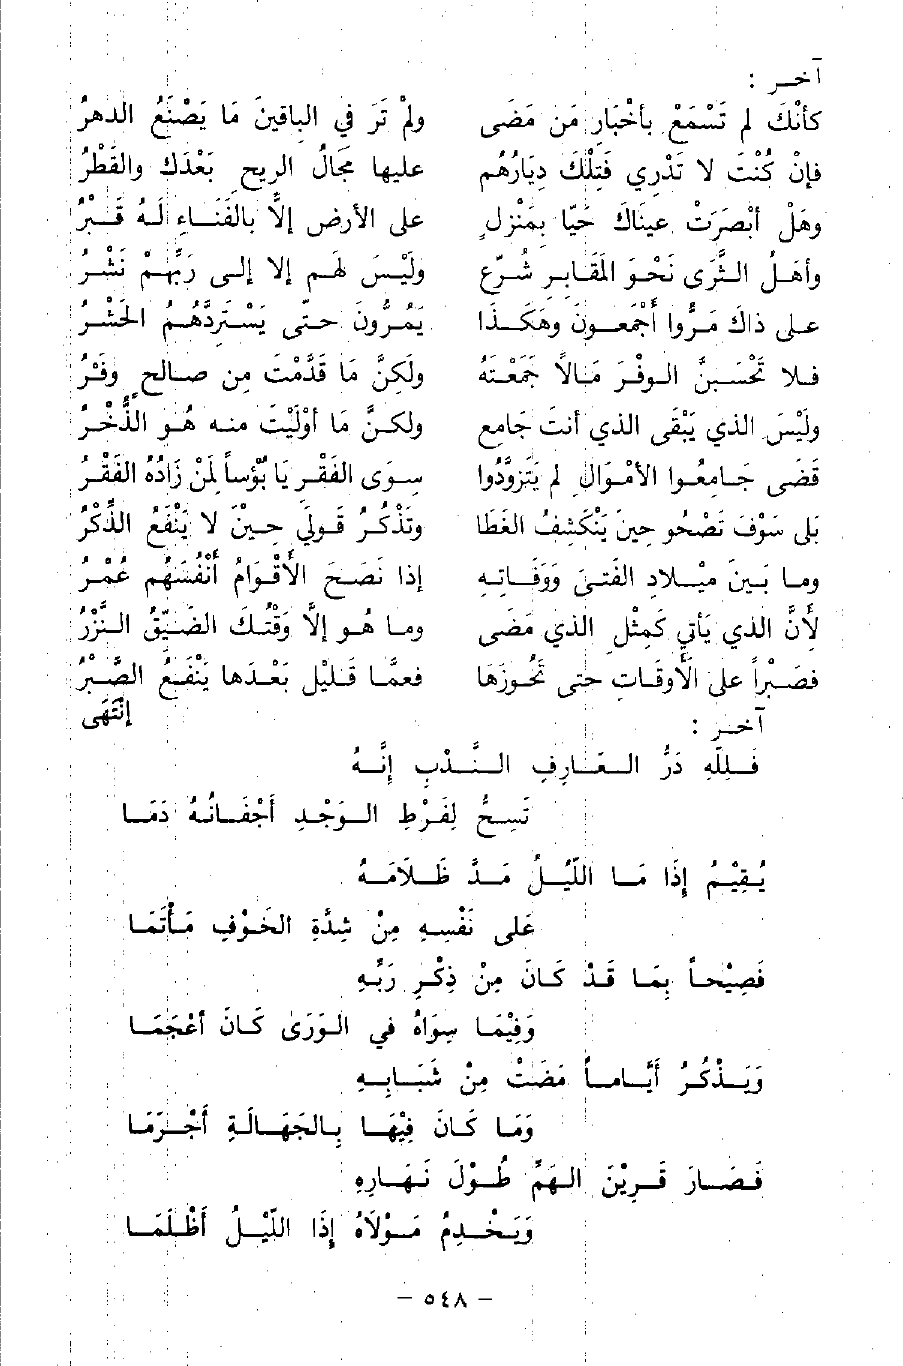 آخـر :
كأنَّكَ لم تَسْمَعْ بأخْبَارِ مَن مَضَى ولمْ تَرَ في الباقينَ مَا يَصْنَعُ الدهرُ
فإنْ كُنْتَ لا تَدْرِي فَتِلْكَ دِيَارُهُم عليها مَجَالُ الريحِ بَعْدَكَ والقَطْرُ
وهَلْ أبْصَرَتْ عيناكَ حَيًّا بِمَنْزِلٍ على الأرضِ إلاَّ بالفَنَـاءِ لَـهُ قَـبْرُ
وأهْلُ الـثَّرَى نَحْوَ المَقَـابِرِ شُـرَّعٌ ولَيْسَ لَهم إلا إلى رَبِّهِمْ نَشْـرُ
على ذَاكَ مَـرُّوا أجْمَعـونَ وهَكَـذَا يَمُـرُّونَ حـتَّى يَسْـتَرِدَّهُـم الحَشْـرُ
فـلا تَحْسَـبَنَّ الـوفْرَ مَـالاً جَمَعْتَهُ ولَكِنَّ مَا قَدَّمْتَ مِن صَالحٍ وَفْـرُ
ولَيْسَ الذي يَبْقَى الذي أنتَ جَامِع ولكـنَّ مَا أوْلَيْتَ منـه هُـو الذُّخْـرُ
قَضَى جَـامِعُـوا الأمْـوَالِ لم يَتَزَوَّدُوا سِـوَى الفَقْـرِ يَا بُؤساً لِمَنْ زَادُهُ الفَقْـرُ
بَلى سَوْفَ تَصْحُو حِينَ يَنْكَشِفُ الغطَا وتَذْكُـرُ قَـولي حِـينَ لا يَنْفَعُ الذِّكْرُ
ومـا بَـينَ مِيْـلادِ الفَتَى ووَفَـاتِـهِ إذا نَصَـحَ الأقْـوَامُ أنْفُسَهُم عُمْـرُ
لأَنَّ الذي يَأتي كَمِثْلِ الذي مَضَى ومـا هُـو إلاَّ وَقْتُـكَ الضَّيِّقُ الـنَّزْرُ
فصَـبْراً على الأوقَاتِ حتى تَحُوزَهَا فعمَّـا قَـليْلٍ بَعْـدَها يَنْفَعُ الصَّـبْرُ
إنْتَهَى
آخـر :
فَـلِلَّهِ دَرُّ العَـارِفِ النَّـدْبِ إنَّـهُ
تَسِـحُّ لِفَـرْطِ الـوَجْدِ أجْفَـانُهُ دَمَـا
يُـقِيْـمُ إذَا مَـا اللَّيْـلُ مَـدَّ ظَـلاَمَـهُ
عَلى نَفْسِهِ مِنْ شِدَّةِ الخَوْفِ مَـأْتَمَـا
فَصِيْحـاً بِمَـا قَـدْ كَـانَ مِنْ ذِكْرِ رَبِّهِ
وَفِيْمَـا سِوَاهُ في الـوَرَى كَانَ أعْجَمَـا
وَيَـذْكُـرُ أيَّـامـاً مَضَتْ مِنْ شَبَـابِـهِ
وَمَا كَانَ فِيْهَـا بِـالجَهَـالَةِ أَجْـرَمَـا
فَـصَـارَ قَـرِيْنَ الهَمِّ طُـوْلَ نَهَـارِهِ
وَيَخْـدِمُ مَـوْلاَهُ إِذَا اللَّيْـلُ أَظْلَمَـا
– ٥٤٨ –